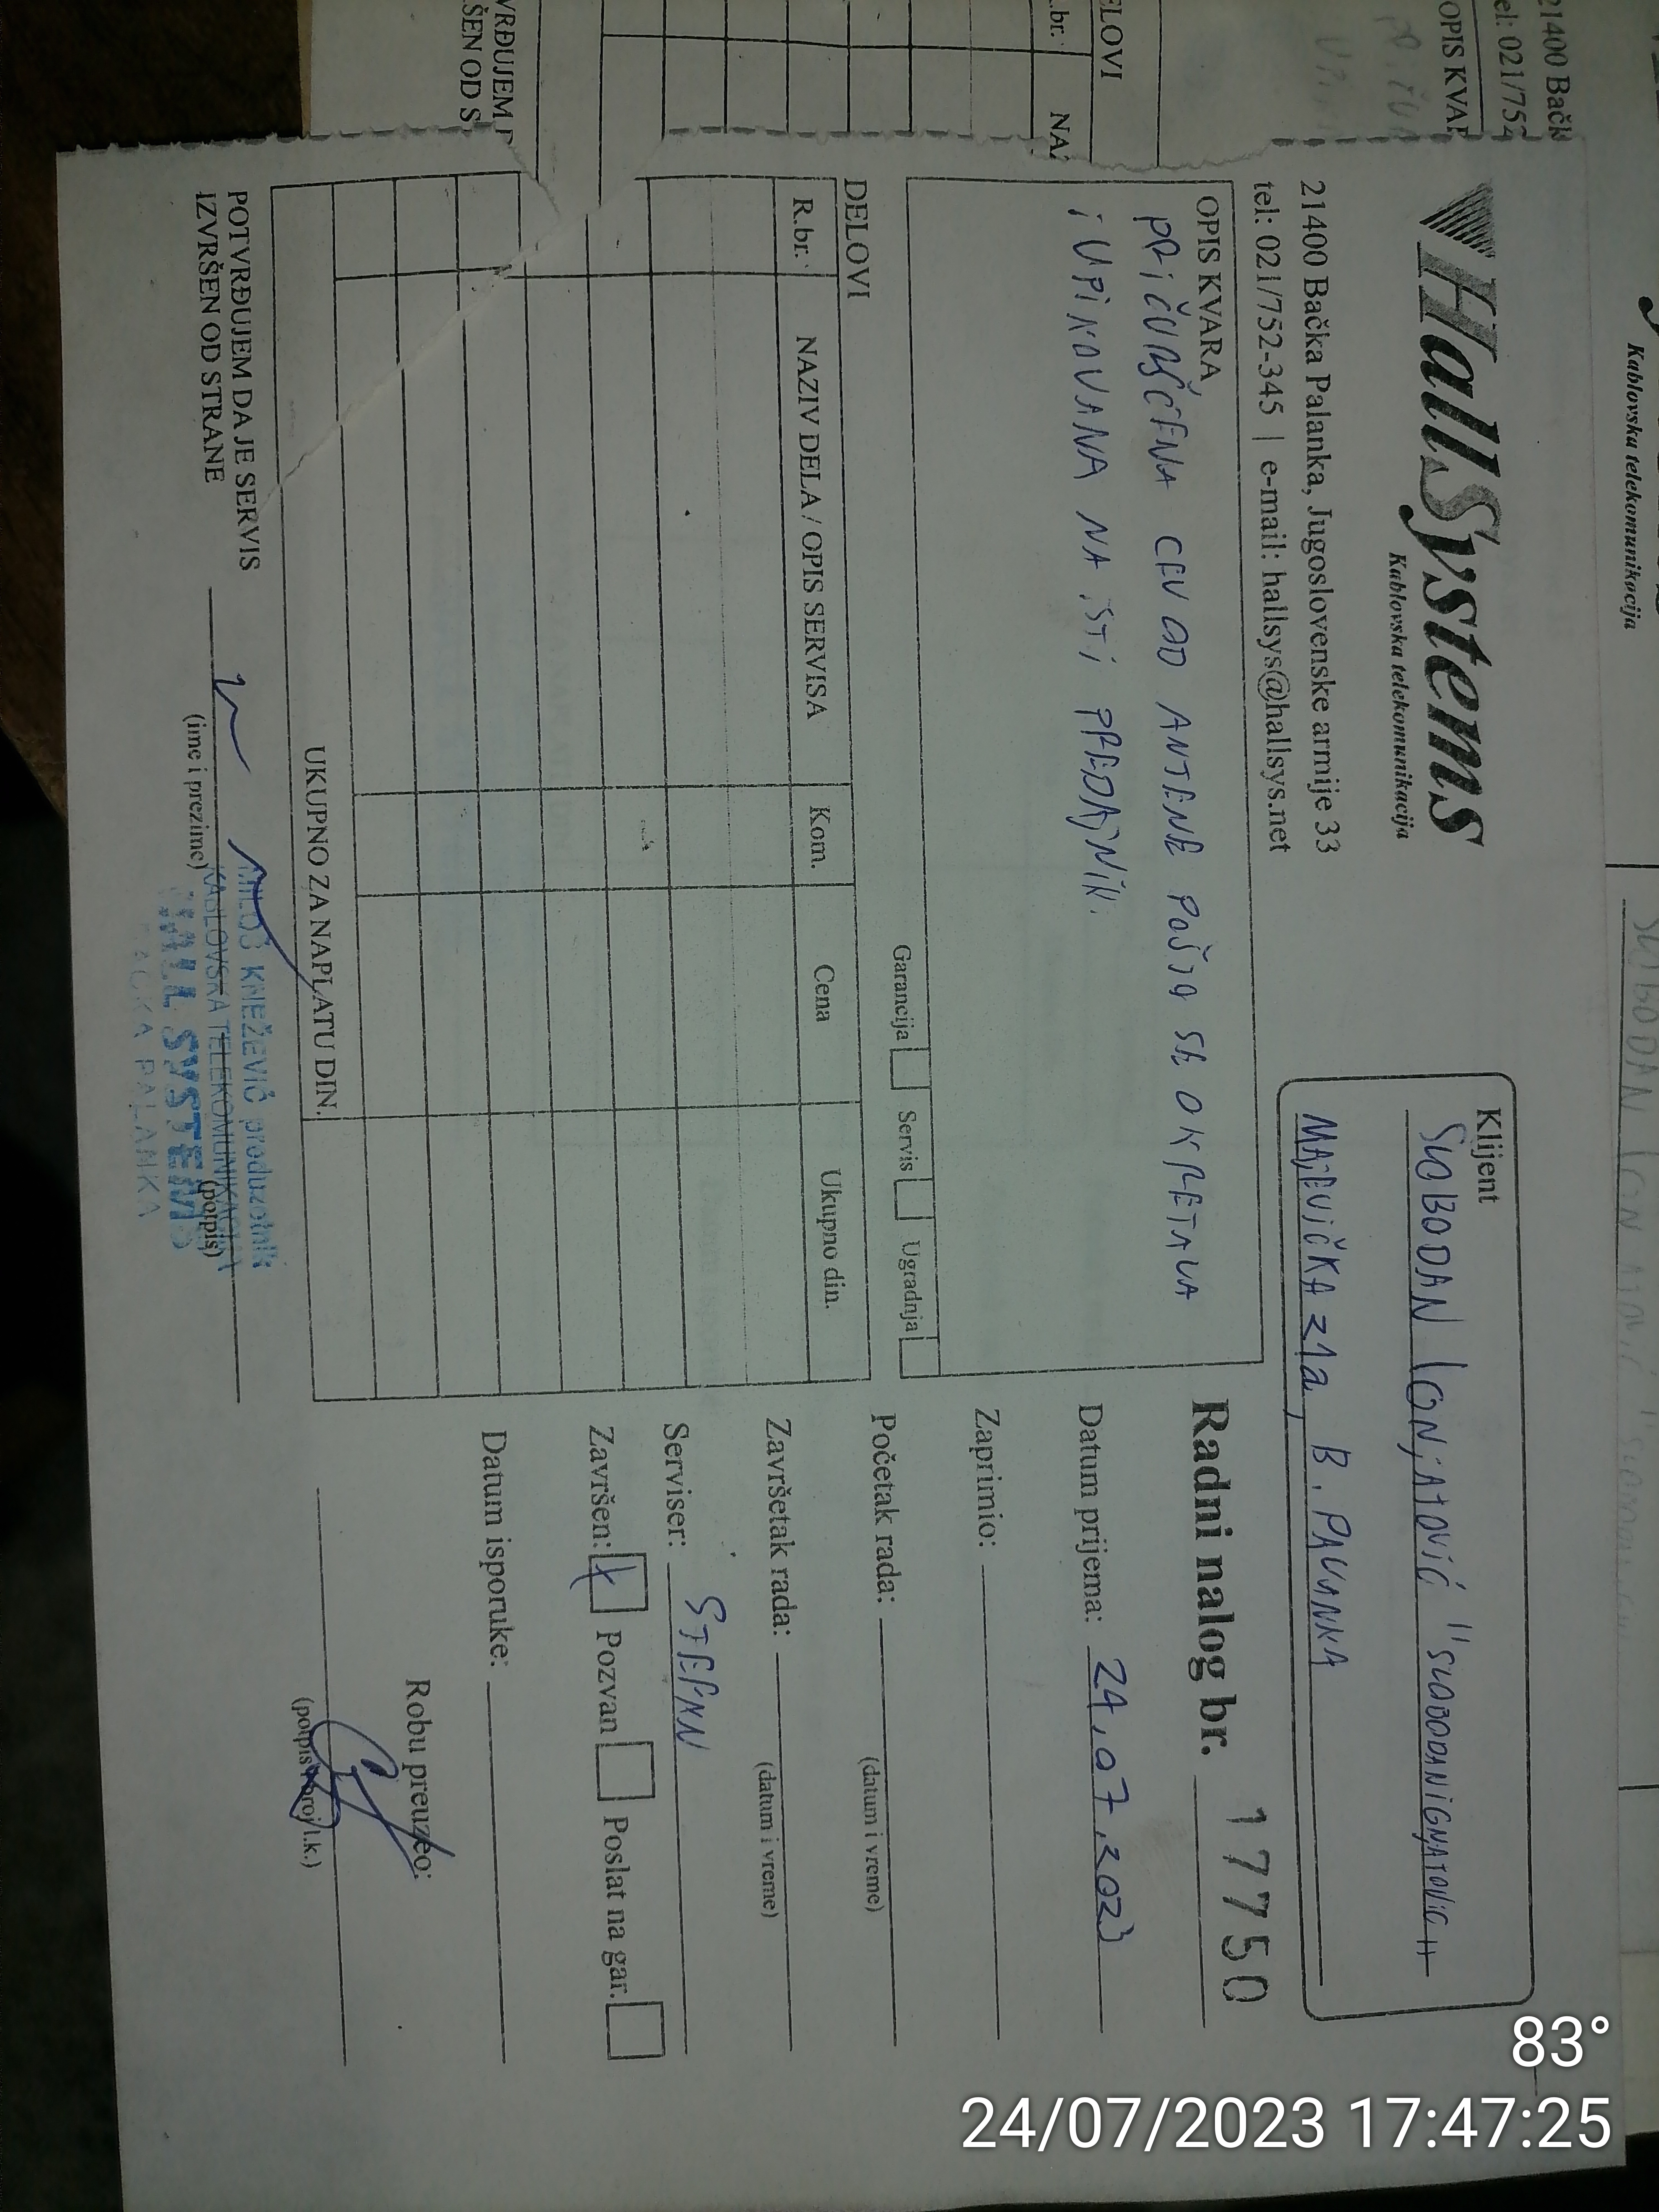 HallSystems
Kablovska telekomunikacija
21400 Bačka Palanka, Jugoslovenske armije 33
tel: 021/752-345 | e-mail: hallsys@hallsys.net
Klijent
SLOBODAN IGNJATOVIĆ "SLOBODANIGNJATOVIC"
MAJEVIČKA 21a, B. PALANKA
OPIS KVARA
PRIČVRŠĆENA CEV OD ANTENE POŠTO SE OKRETALA
I UPINOVANA NA ISTI PREDAJNIK.
Garancija Servis Ugradnja
Radni nalog br. 17750
Datum prijema: 24.07.2023
Zaprimio:
Početak rada:
(datum i vreme)
Završetak rada:
(datum i vreme)
Serviser: STEFAN
Završen: Pozvan Poslat na gar.
Datum isporuke:
Robu preuzeo:
(potpis i broj l.k.)
DELOVI
R.br. NAZIV DELA / OPIS SERVISA Kom. Cena Ukupno din.
UKUPNO ZA NAPLATU DIN.
POTVRĐUJEM DA JE SERVIS
IZVRŠEN OD STRANE
(ime i prezime)
(potpis)
MILOŠ KNEŽEVIĆ preduzetnik
KABLOVSKA TELEKOMUNIKACIJA
HALL SYSTEMS
BAČKA PALANKA
Kablovska telekomunikacija
21400 Bačk
tel: 021/752
OPIS KVAR
DELOVI
R.br. NAZ
VRĐUJEM D
ŠEN OD S
SLOBODAN
83°
24/07/2023 17:47:25